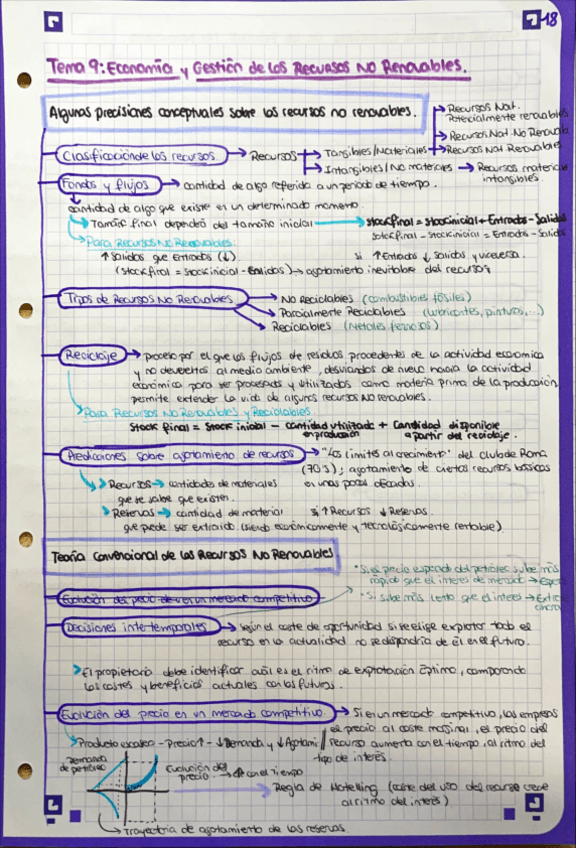 18
Tema 9: Economía y Gestión de los Recursos No Renovables.
Algunas precisiones conceptuales sobre los recursos no renovables.
Recursos Nat. Potencialmente renovables
Recursos Nat. No Renovab
Recursos Nat Renovables
Clasificación de los recursos → Recursos → Tangibles/Materiales
Intangibles/No materiales → Recursos materiales intangibles.
Fondos y flujos → cantidad de algo referida a un periodo de tiempo.
cantidad de algo que existe en un determinado momento.
Tamaño final dependrá del tamaño inicial → stock final = stock inicial + Entradas - Salidas
stock final - stock inicial = Entradas - Salidas
Para Recursos No Renovables:
↑ Salidas que Entradas (↓) si ↑ Entradas ↓ salidas y viceversa.
(stock final = stock inicial - Salidas) → agotamiento inevitable del recurso
Tipos de Recursos No Renovables → No Reciclables (combustibles fósiles)
Parcialmente Reciclables (lubricantes, pinturas, ...)
Reciclables (Metales ferricos)
Reciclaje → proceso por el que los flujos de residuos procedentes de la actividad económica
y no devueltos al medio ambiente, desviandos de nuevo hacia la actividad
económica para ser procesados y utilizados como materia prima de la producción
permite extender la vida de algunos recursos NO renovables.
Para Recursos No Renovables y Reciclables
Stock final = Stock inicial - cantidad utilizada en producción + Cantidad disponible a partir del reciclaje.
Predicciones sobre agotamiento de recursos → "Los límites al crecimiento" del club de Roma
(70's); agotamiento de ciertos recursos básicos
Recursos → cantidades de materiales en unas pocas décadas.
que se sabe que existen.
Reservas → cantidad de material si ↑ Recursos ↓ Reservas.
que puede ser extraído (siendo económicamente y tecnológicamente rentable)
Teoría Convencional de los Recursos No Renovables
* Si el precio esperado del petróleo sube más
rápido que el interés de mercado → Espe
Evolución del precio de ver un mercado competitivo
* Si sube más lento que el interés → Extra
Decisiones intertemporales → según el coste de oportunidad si se elige explotar todo el
recurso en la actualidad no se dispondría de él en el futuro.
El propietario debe identificar cuál es el ritmo de explotación óptimo, comparando
los costes y beneficios actuales con los futuros.
Evolución del precio en un mercado competitivo → Si en un mercado competitivo, las empresas
el precio al coste marginal, el precio del
Producto escaso - Precio ↑ - ↓ Demanda y ↓ Agotami // Recurso aumenta con el tiempo, al ritmo del
tipo de interés.
Demanda de petróleo
Evolución del precio → con el tiempo
Regla de Hotelling (coste del uso del recurso crece
al ritmo del interés)
Trayectoria de agotamiento de las reservas